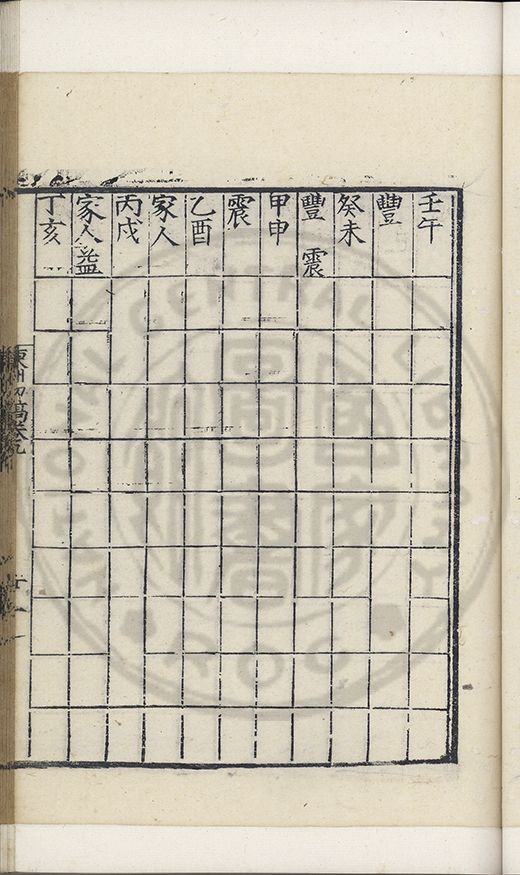 壬午
豐
癸未
豐 震
甲申
震
乙酉
家人
丙戌
家人 益
丁亥